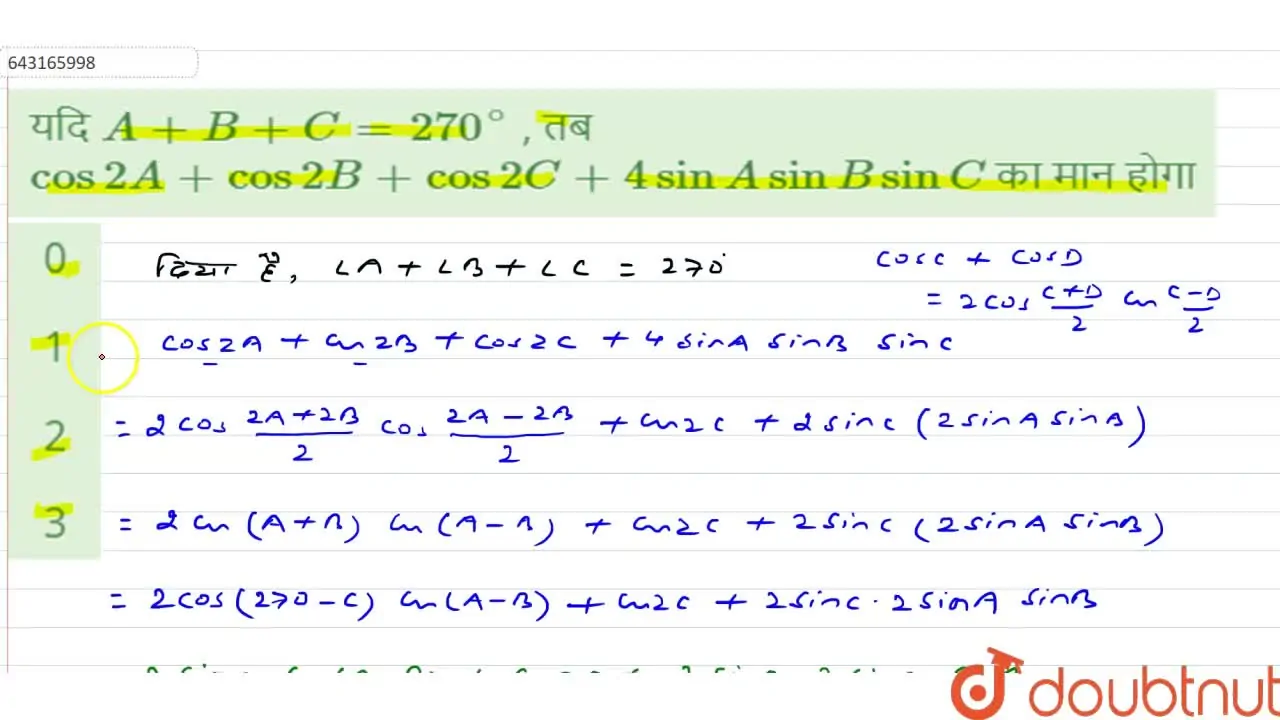 643165998
यदि A + B + C = 270° , तब
cos 2A + cos 2B + cos 2C + 4 sin A sin B sin C का मान होगा
0
1
2
3
दिया है, ∠A + ∠B + ∠C = 270°
cosC + cosD
= 2cos (C+D)/2 cos (C-D)/2
cos2A + cos2B + cos2C + 4 sinA sinB sinC
= 2 cos (2A+2B)/2 cos (2A-2B)/2 + cos2C + 2 sinC (2 sinA sinB)
= 2 cos (A+B) cos (A-B) + cos2C + 2 sinC (2 sinA sinB)
= 2cos(270-C) cos(A-B) + cos2C + 2sinC · 2sinA sinB
doubtnut